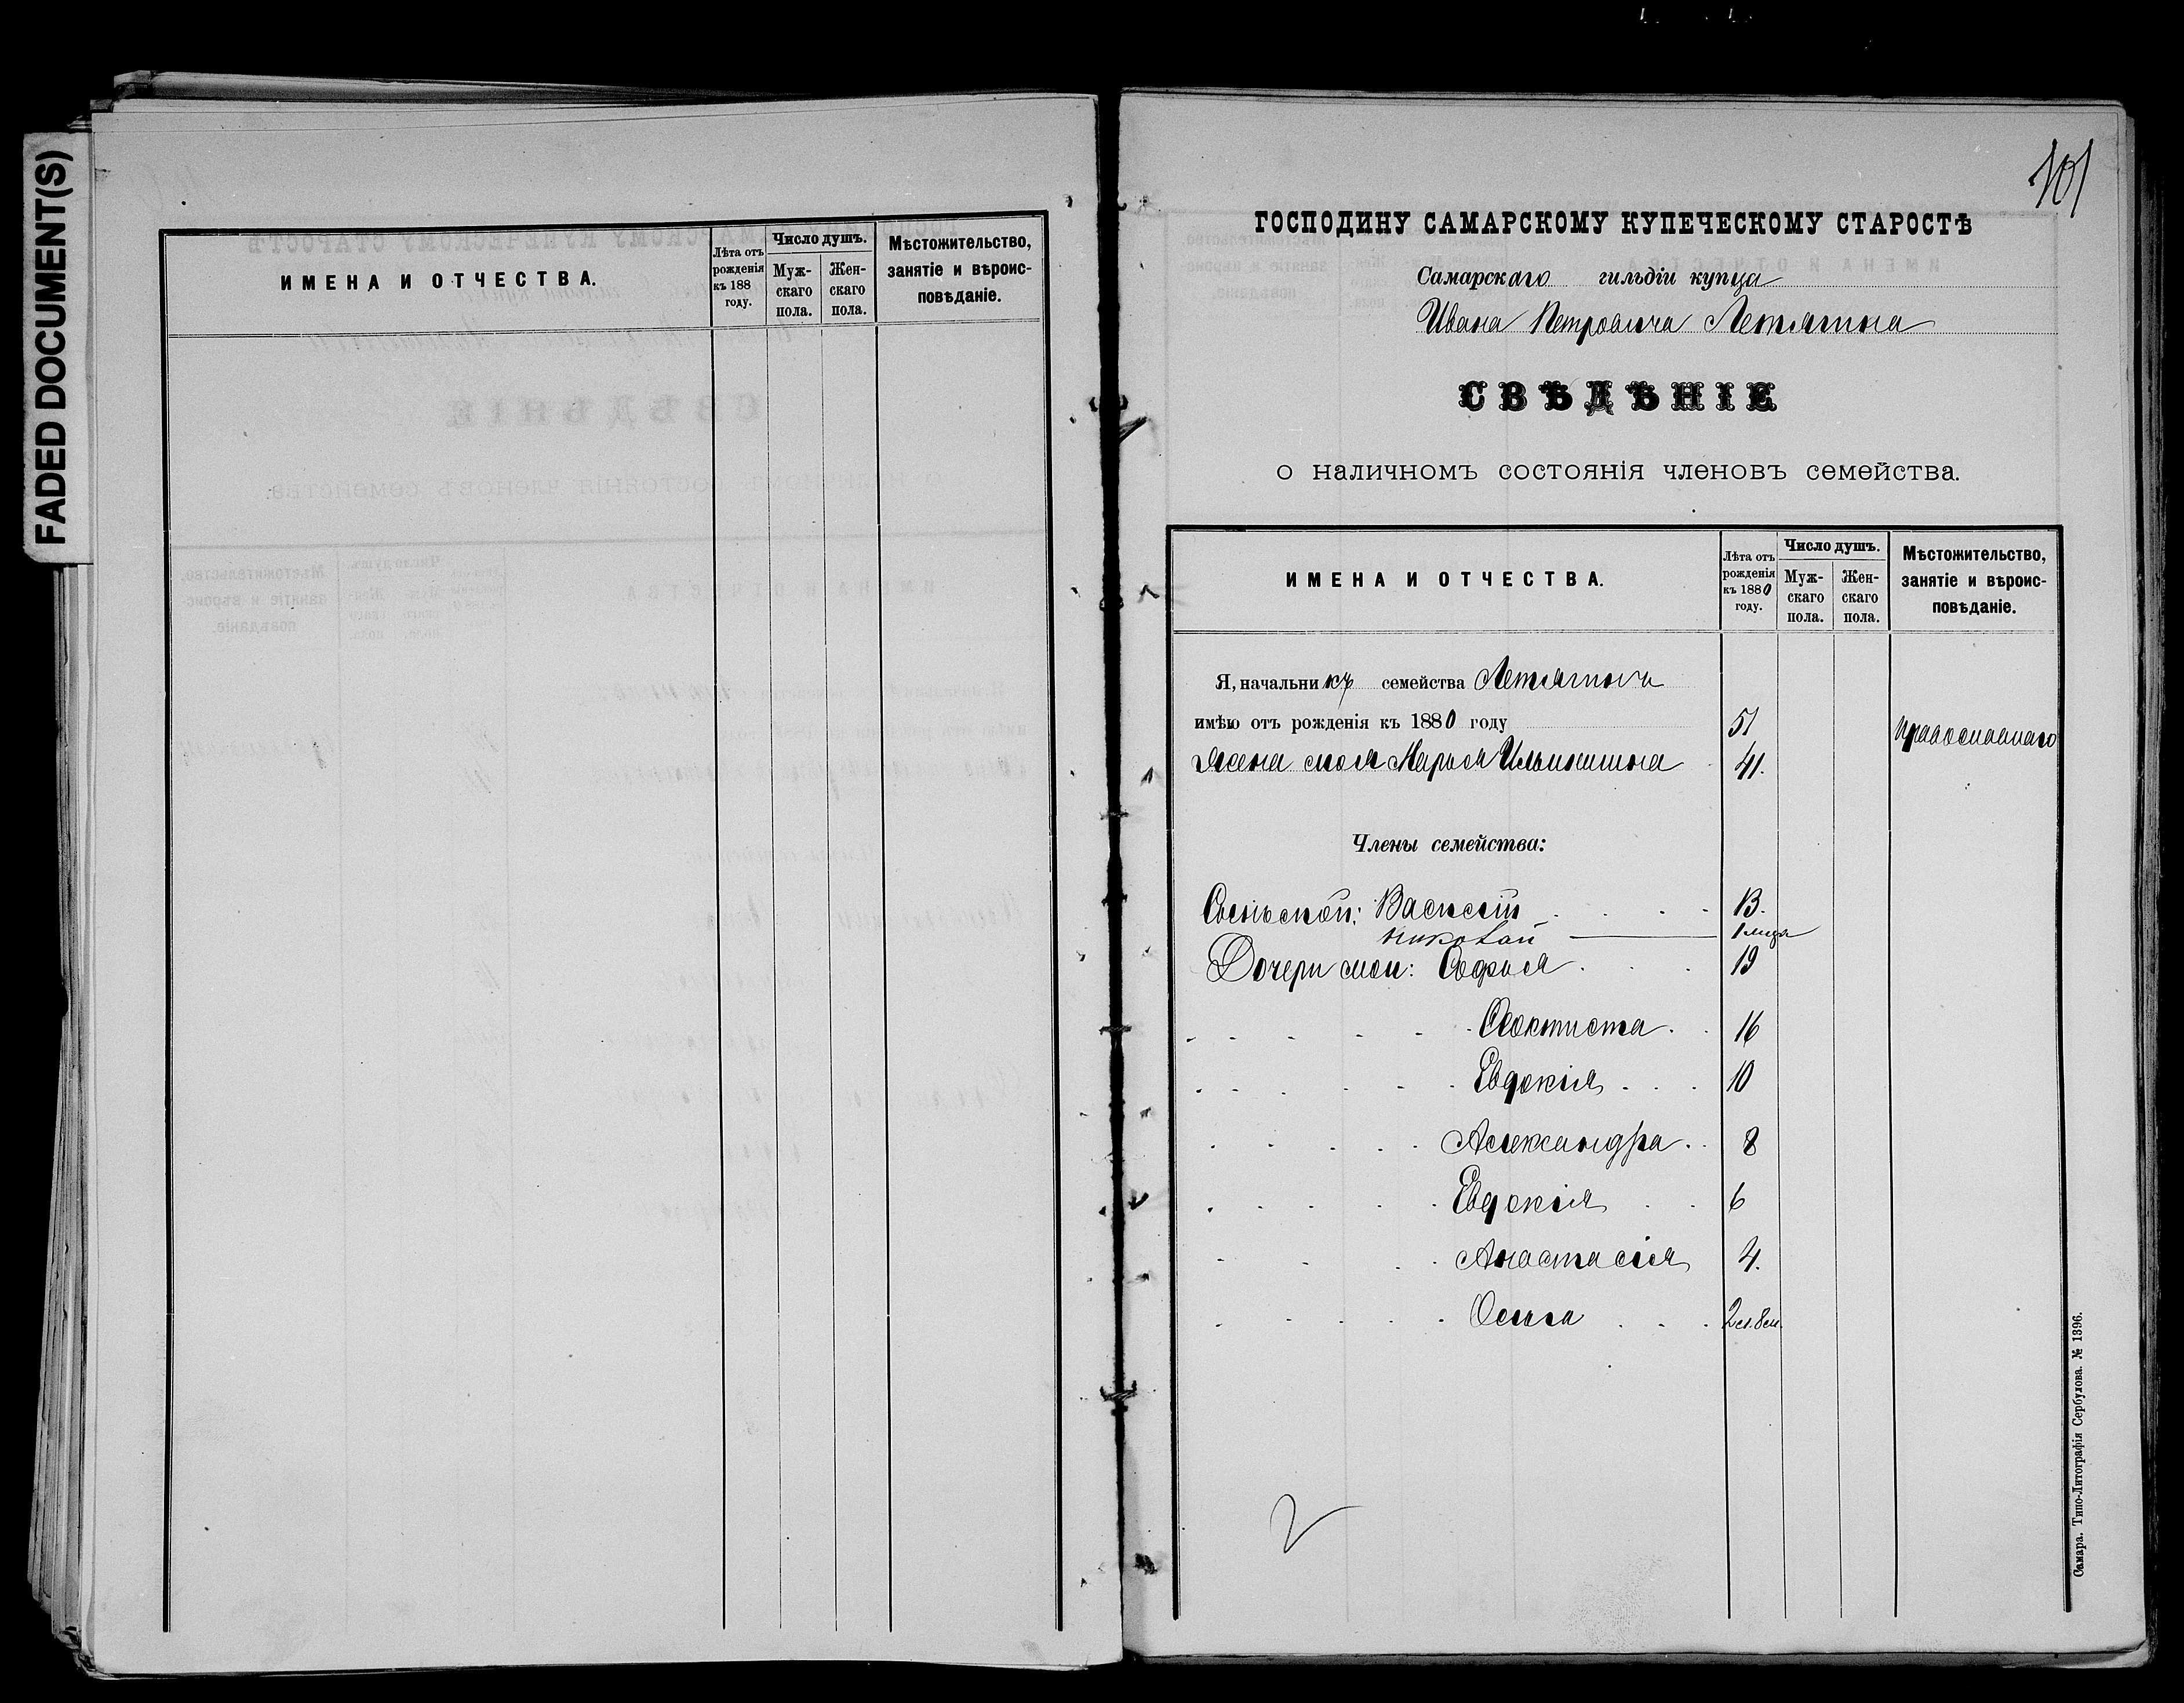 FADED DOCUMENT(S)
ИМЕНА И ОТЧЕСТВА.
Лѣта отъ рожденія къ 188 году.
Число душъ.
Мужскаго пола.
Женскаго пола.
Мѣстожительство, занятіе и вѣроисповѣданіе.
101
ГОСПОДИНУ САМАРСКОМУ КУПЕЧЕСКОМУ СТАРОСТѢ
Самарскаго гильдіи купца
Ивана Петровича Летягина
СВѢДѢНІЕ
о наличномъ состоянія членовъ семейства.
ИМЕНА И ОТЧЕСТВА.
Лѣта отъ рожденія къ 1880 году.
Число душъ.
Мужскаго пола.
Женскаго пола.
Мѣстожительство, занятіе и вѣроисповѣданіе.
Я, начальникъ семейства Летягина
имѣю отъ рожденія къ 1880 году 51 православнаго
Жена моя Марья Ильинишна 41.
Члены семейства:
Василій 13.
Николай 1
Дочери мои: Софья 19
Феоктиста 16
Евдокія 10
Александра 8
Евдокія 6
Анастасія 4.
Ольга
2
Самара. Типо-Литографія Сербулова. № 1396.